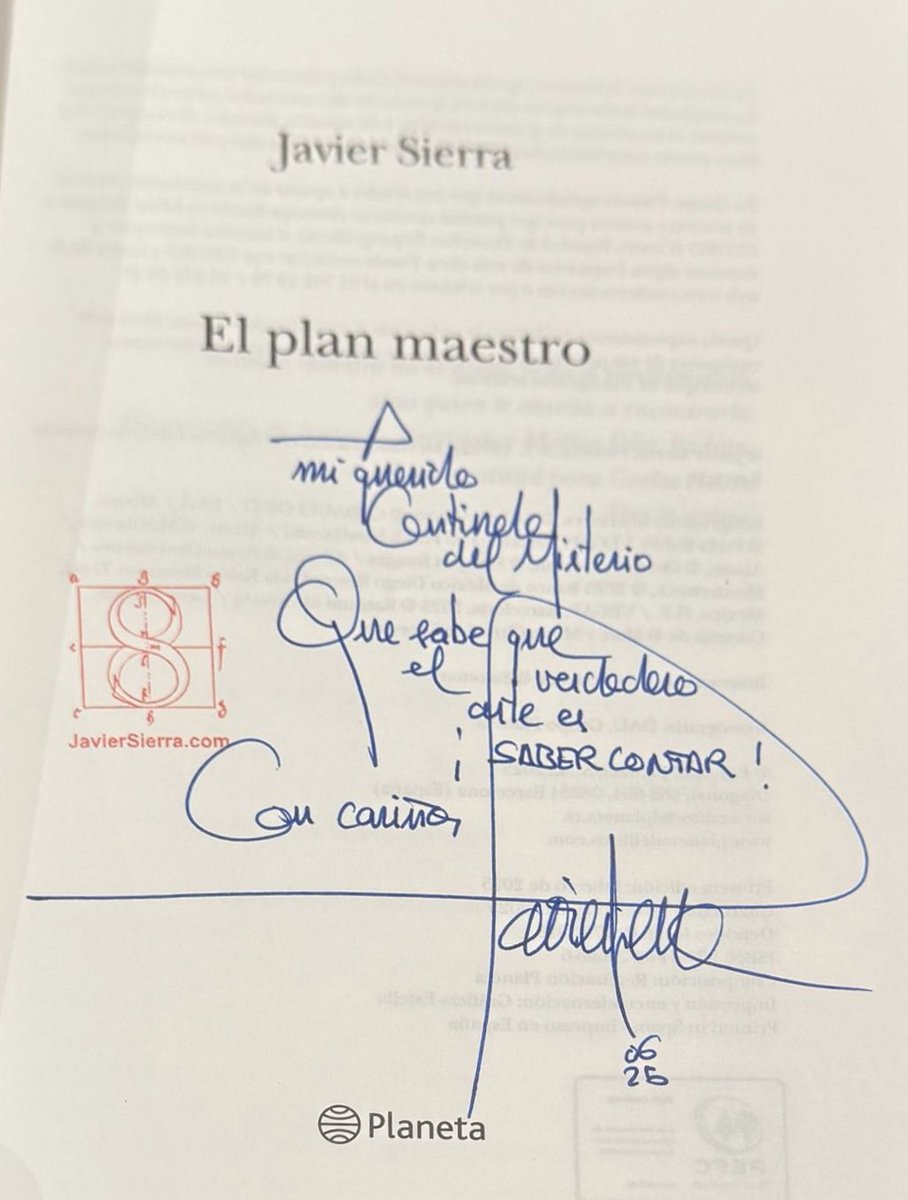 Javier Sierra
El plan maestro
A
mi querido
Centinela
del Misterio
Que sabe que
el verdadero
arte es
¡SABER CONTAR!
Con cariño,
JavierSierra.com
06
25
Planeta